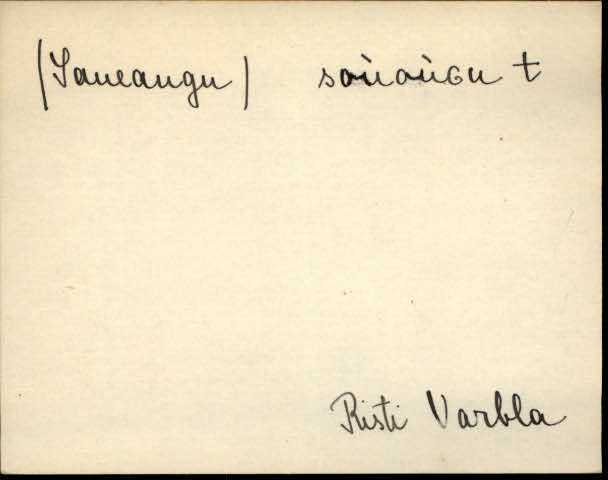 (Saueaugu) sau̎au̎Gu t
Risti Varbla